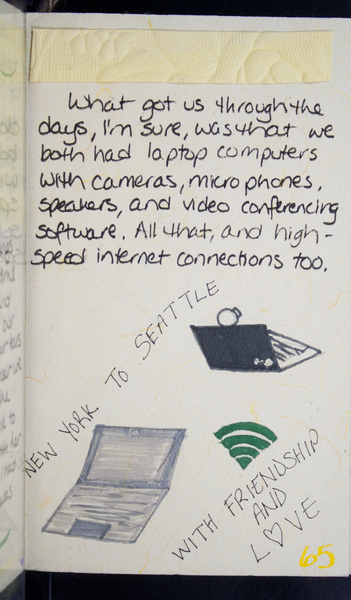 What got us through the
days, I'm sure, was that we
both had laptop computers
with cameras, microphones,
speakers, and video conferencing
software. All that, and high-
speed internet connections too.
NEW YORK TO SEATTLE
WITH FRIENDSHIP
AND
L♡VE
65